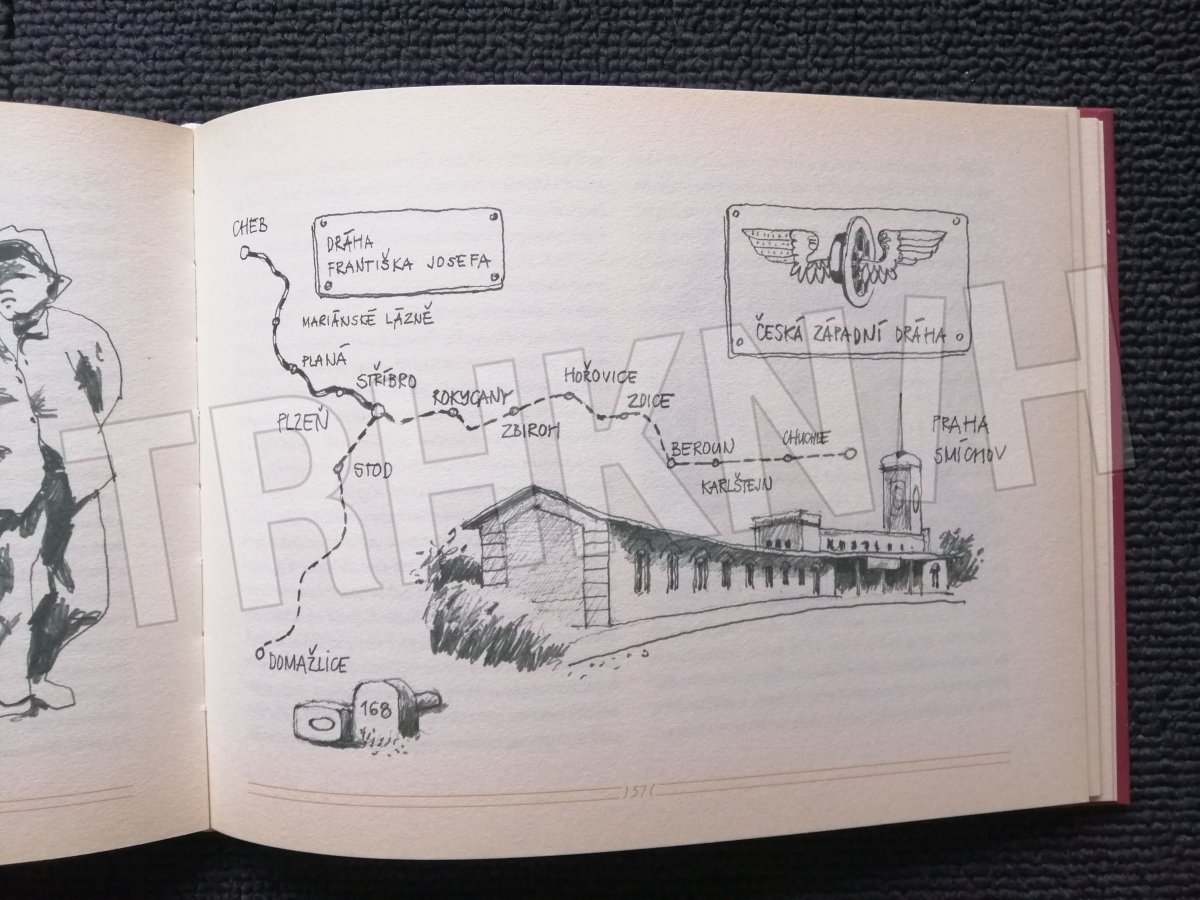 CHEB
DRÁHA
FRANTIŠKA JOSEFA
MARIÁNSKÉ LÁZNĚ
PLANÁ
STŘÍBRO
PLZEŇ
STOD
DOMAŽLICE
ROKYCANY
ZBIROH
HOŘOVICE
ZDICE
BEROUN
KARLŠTEJN
CHUCHLE
PRAHA
SMÍCHOV
ČESKÁ ZÁPADNÍ DRÁHA
168
57
TRHKNIH